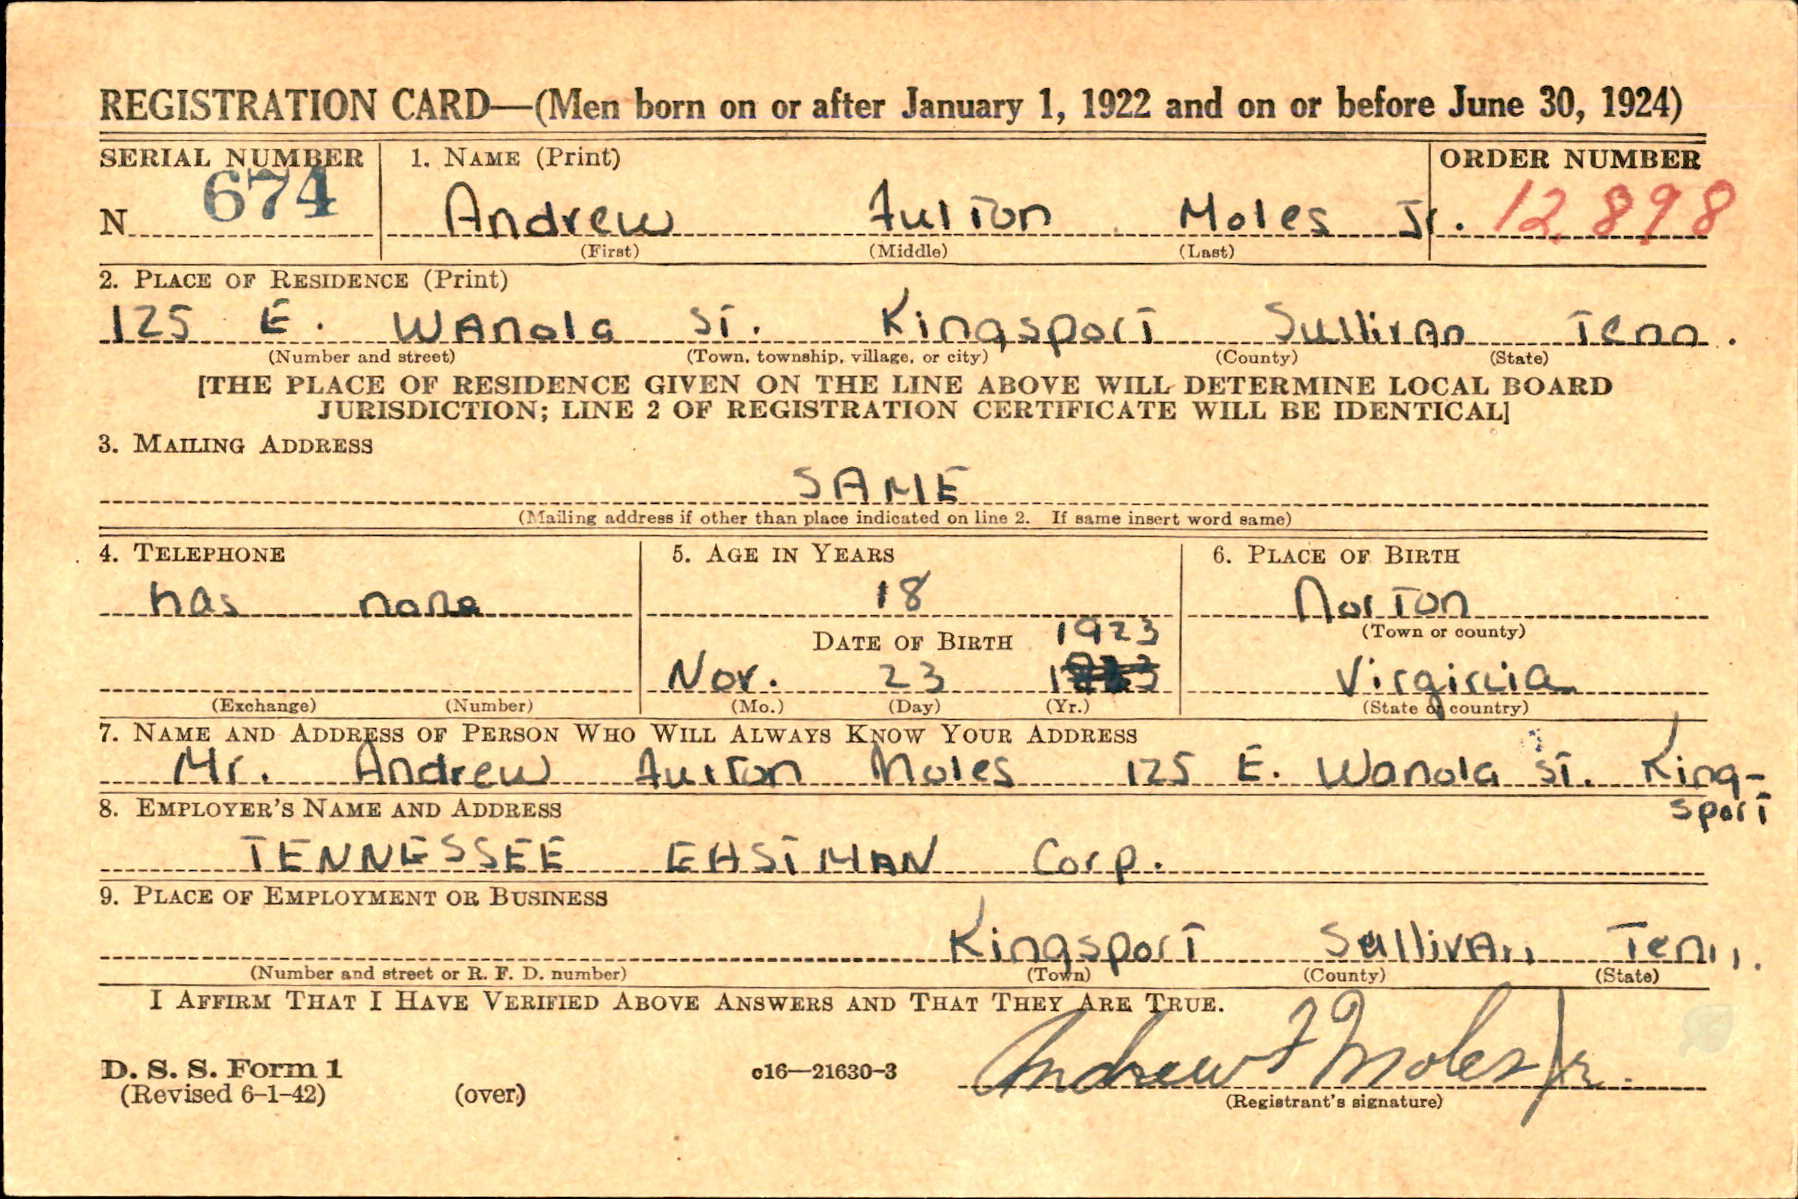 REGISTRATION CARD—(Men born on or after January 1, 1922 and on or before June 30, 1924)
SERIAL NUMBER 1. NAME (Print) ORDER NUMBER
N 674 Andrew Fulton Moles Jr. 12,898
(First) (Middle) (Last)
2. PLACE OF RESIDENCE (Print)
125 E. Wanola St. Kingsport Sullivan Tenn.
(Number and street) (Town, township, village, or city) (County) (State)
[THE PLACE OF RESIDENCE GIVEN ON THE LINE ABOVE WILL DETERMINE LOCAL BOARD
JURISDICTION; LINE 2 OF REGISTRATION CERTIFICATE WILL BE IDENTICAL]
3. MAILING ADDRESS
SAME
(Mailing address if other than place indicated on line 2. If same insert word same)
4. TELEPHONE 5. AGE IN YEARS 6. PLACE OF BIRTH
has none 18 Norton
DATE OF BIRTH 1923 (Town or county)
Nov. 23 Virginia
(Exchange) (Number) (Mo.) (Day) (Yr.) (State or country)
7. NAME AND ADDRESS OF PERSON WHO WILL ALWAYS KNOW YOUR ADDRESS
Mr. Andrew Fulton Moles 125 E. Wanola St. King-
sport
8. EMPLOYER'S NAME AND ADDRESS
TENNESSEE EASTMAN Corp.
9. PLACE OF EMPLOYMENT OR BUSINESS
Kingsport Sullivan Tenn.
(Number and street or R. F. D. number) (Town) (County) (State)
I AFFIRM THAT I HAVE VERIFIED ABOVE ANSWERS AND THAT THEY ARE TRUE.
Andrew F Moles Jr.
D. S. S. Form 1 c16—21630-3
(Revised 6-1-42) (over) (Registrant's signature)